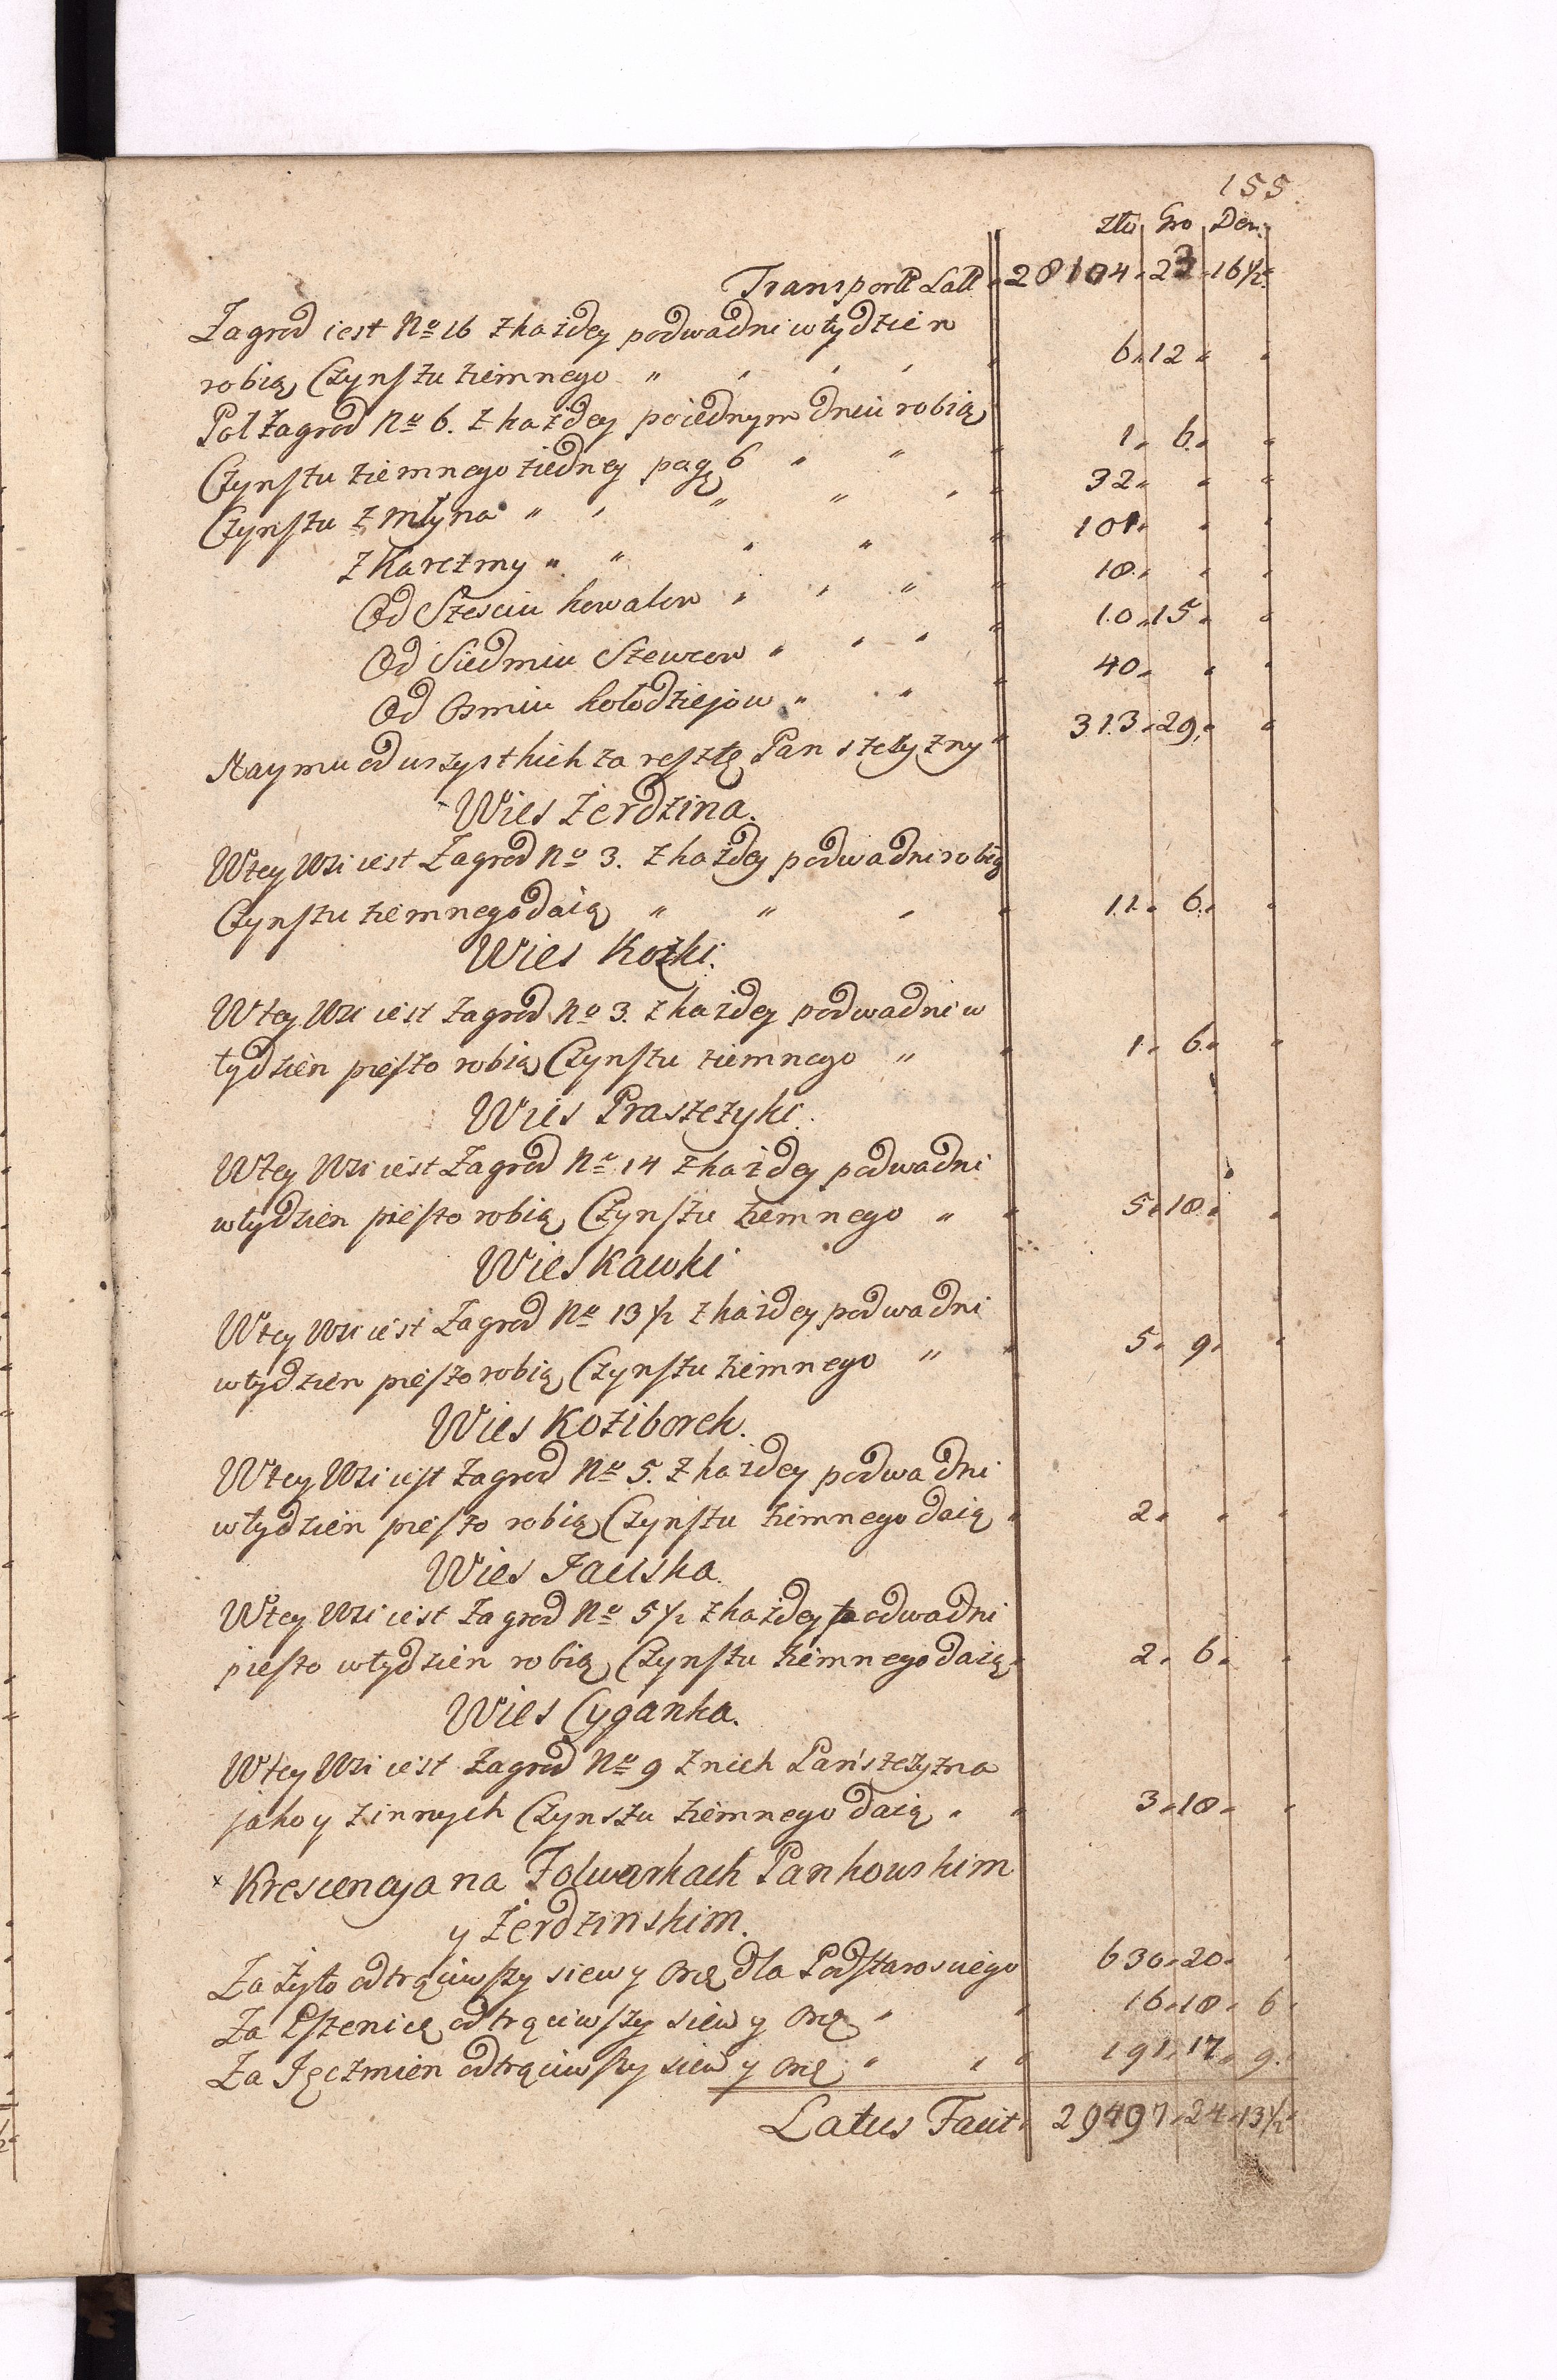 155.
Złtt Gro Den:
Transportt Latt 28104 „ 23 „ 16½
Zagrod iest No 16 z każdey podwadni w tydzien
robią Czynszu ziemnego „ „ „ „ 6 „ 12 „ „
Poł Zagrod No 6. z każdey po iednym dniu robią
Czynszu ziemnego ziedney pagę 6 „ „ „ 1 „ 6 „ „
Czynszu z młyna „ „ „ „ „ 32 „ „ „
z Karczmy „ „ „ „ 101 „ „ „
Od Szesciu kowalow „ „ „ 18 „ „ „
Od Siedmiu Szewcow „ „ „ 10 „ 15 „ „
Od Osmiu kołodziejow „ „ 40 „ „ „
Naymu od wszystkich za resztę Panszczyzny „ 313 „ 29 „ „
Wies Zerdzina.
W tey Wsi iest Zagrod No 3. z każdey podwadni robią
Czynszu ziemnego daią „ „ „ „ 11 „ 6 „ „
Wies Kozki.
W tey Wsi iest Zagrod No 3. z każdey podwadni w
tydzien pieszo robią Czynszu ziemnego „ „ 1 „ 6 „ „
Wies Praszczyki.
W tey Wsi iest Zagrod No 14 z każdey podwadni
w tydzien pieszo robią Czynszu ziemnego „ „ 5 „ 18 „ „
Wies Kawki
W tey Wsi iest Zagrod No 13½ z każdey podwadni
w tydzien pieszo robią Czynszu ziemnego „ „ 5 „ 9 „ „
Wies Koziborek.
W tey Wsi iest Zagrod No 5. z każdey podwadni
w tydzien pieszo robią Czynszu ziemnego daią „ 2 „ „ „
Wies Jaciska.
W tey Wsi iest Zagrod No 5½ z każdey podwadni
pieszo w tydzien robią Czynszu ziemnego daią „ 2 „ 6 „ „
Wies Cyganka.
W tey Wsi iest Zagrod No 9 z nich Pańszczyzna
jako y z innych Czynszu ziemnego daią „ „ 3 „ 18 „ „
x Krescencya na Folwarkach Pankowskim
y Zerdzinskim.
Za Zyto odtrąciwszy siew y Orę dla Podstarosciego 630 „ 20 „ „
Za Pszenicę odtrąciwszy siew y Orę „ „ 16 „ 18 „ 6 „
Za Jęczmien odtrąciwszy siew y Orę „ „ „ 191 „ 17 „ 9 „
Latus Facit „ 29497 „ 24 „ 13½